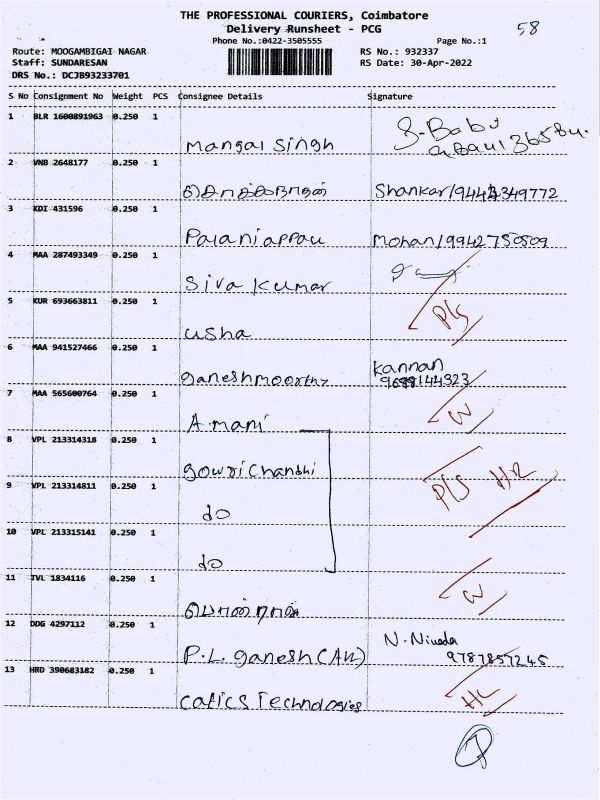 THE PROFESSIONAL COURIERS, Coimbatore
58
Delivery Runsheet - PCG
Phone No.:0422-3505555
Page No.:1
Route: MOOGAMBIGAI NAGAR
RS No.: 932337
Staff: SUNDARESAN
RS Date: 30-Apr-2022
DRS No.: DCJB93233701
S No Consignment No Weight PCS Consignee Details Signature
1 BLR 1600891963 0.250 1
Mangal Singh
S. Babu
2 VNB 2648177 0.250 1
Shankar/9444349772
3 KDI 431596 0.250 1
Palaniappau Mohan/9942750509
4 MAA 287493349 0.250 1
Siva Kumar
5 KUR 693663811 0.250 1
usha
P/S
6 MAA 941527466 0.250 1
Ganeshmoorthy
Kannan
7 MAA 565600764 0.250 1
A.mani
W
8 VPL 213314318 0.250 1
Gowri Chandhi
9 VPL 213314811 0.250 1
do
P/S HR
10 VPL 213315141 0.250 1
do
11 TVL 1834116 0.250 1
W
12 DDG 4297112 0.250 1
P.L. Ganesh (AK)
N. Niveda
9787857245
13 HRD 390683182 0.250 1
Calics Technologies
HL